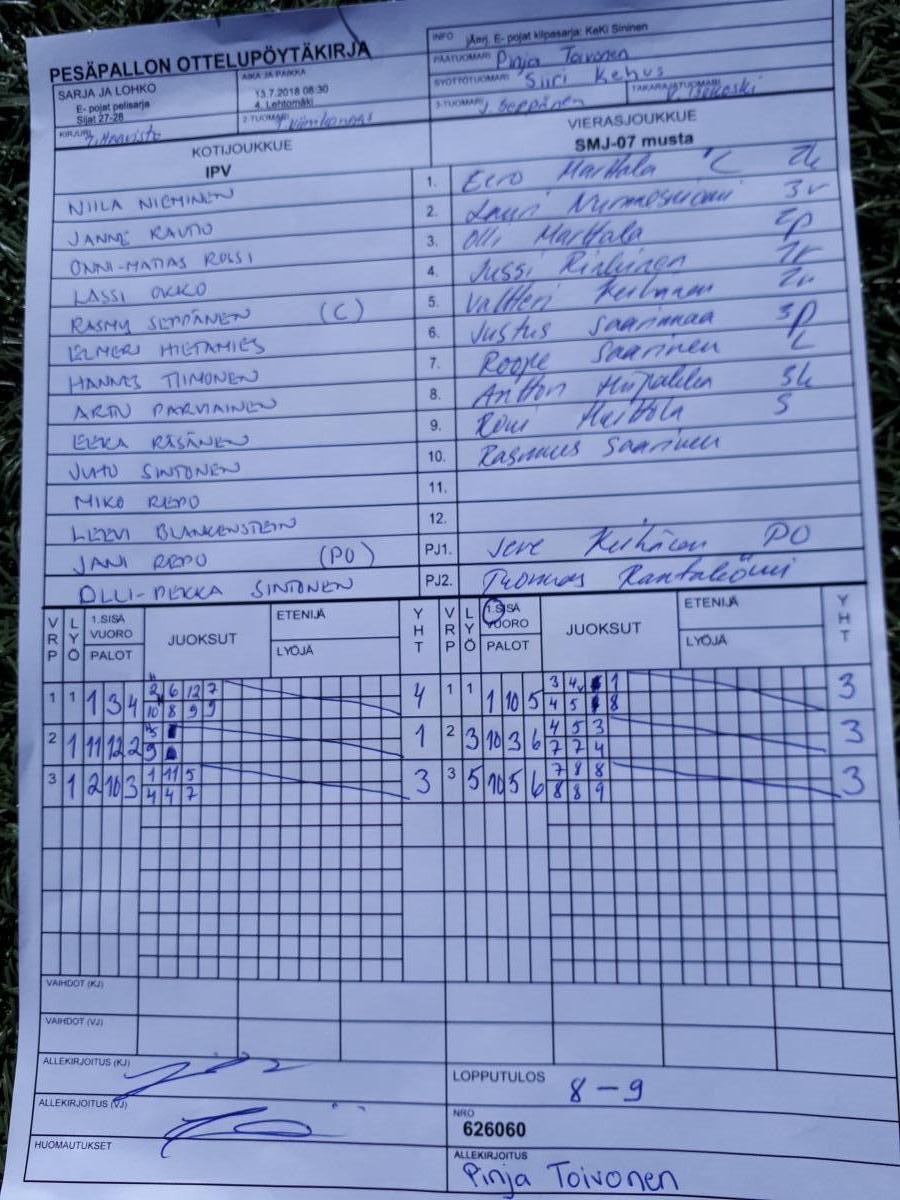 PESÄPALLON OTTELUPÖYTÄKIRJA
INFO jÄnrj. E- pojat kilpasarja: KeKi Sininen
PÄÄTUOMARI Pinja Toivonen
SYÖTTÖTUOMARI Siiri Kehus
TAKARAJATUOMARI
3-TUOMARI J. Seppänen
SARJA JA LOHKO
E- pojat pelisarja
Sijat 27-28
AIKA JA PAIKKA
13.7.2018 08:30
4. Lehtomäki
KIRJURI
2-TUOMARI
KOTIJOUKKUE
IPV
VIERASJOUKKUE
SMJ-07 musta
NIILA NIEMINEN 1. Eero Marttala C 2k
JANNE RAUTIO 2. Lauri Nurmesniemi 3v
ONNI-MATIAS ROSSI 3. Olli Marttala 2p
LASSI OKKO 4. Jussi
RASMU SEPPÄNEN (C) 5. Valtteri
ELMERI HIETAMIES 6. Justus Saarimaa 3p
HANNES TIIMONEN 7. Roope Saarinen L
ARTTU PARVIAINEN 8. Antton 3k
EEKA RÄSÄNEN 9. Roni S
JUHO SINTONEN 10. Rasmus Saarinen
MIKO REPO 11.
LEEVI BLANKENSTEIN 12.
JANI REPO (PO) PJ1. PO
OLLI-PEKKA SINTONEN PJ2. Tuomas
VRP LYÖ 1.SISÄ VUORO PALOT JUOKSUT ETENIJÄ LYÖJÄ YHT VRP LYÖ 1.SISÄ VUORO PALOT JUOKSUT ETENIJÄ LYÖJÄ YHT
1 1 1 3 4 2 6 12 7 4 1 1 1 10 5 3 4 1 3
10 8 9 9 4 5 8
2 1 11 12 2 5 1 2 3 10 3 6 4 5 3 3
9 7 7 4
3 1 2 10 3 1 11 5 3 3 5 10 5 6 7 8 8 3
4 4 7 8 8 9
VAIHDOT (KJ)
VAIHDOT (VJ)
ALLEKIRJOITUS (KJ)
ALLEKIRJOITUS (VJ)
HUOMAUTUKSET
LOPPUTULOS 8 - 9
NRO
626060
ALLEKIRJOITUS
Pinja Toivonen